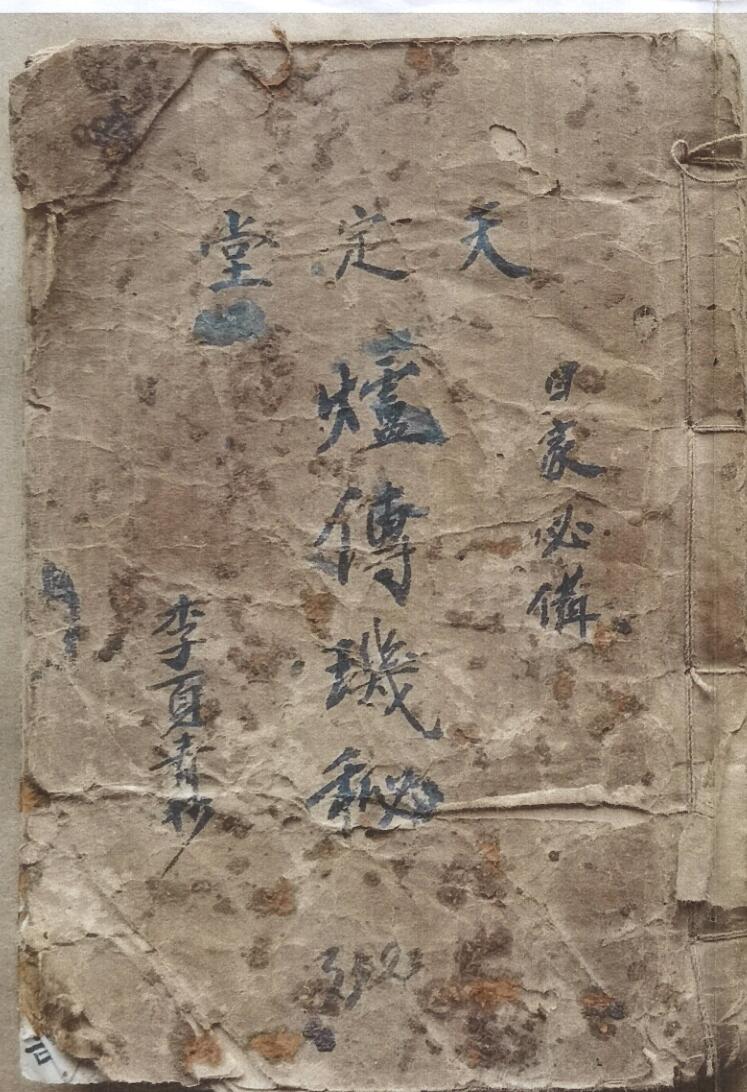 天定堂
日家必備
爐傳璣秘
李夏青抄